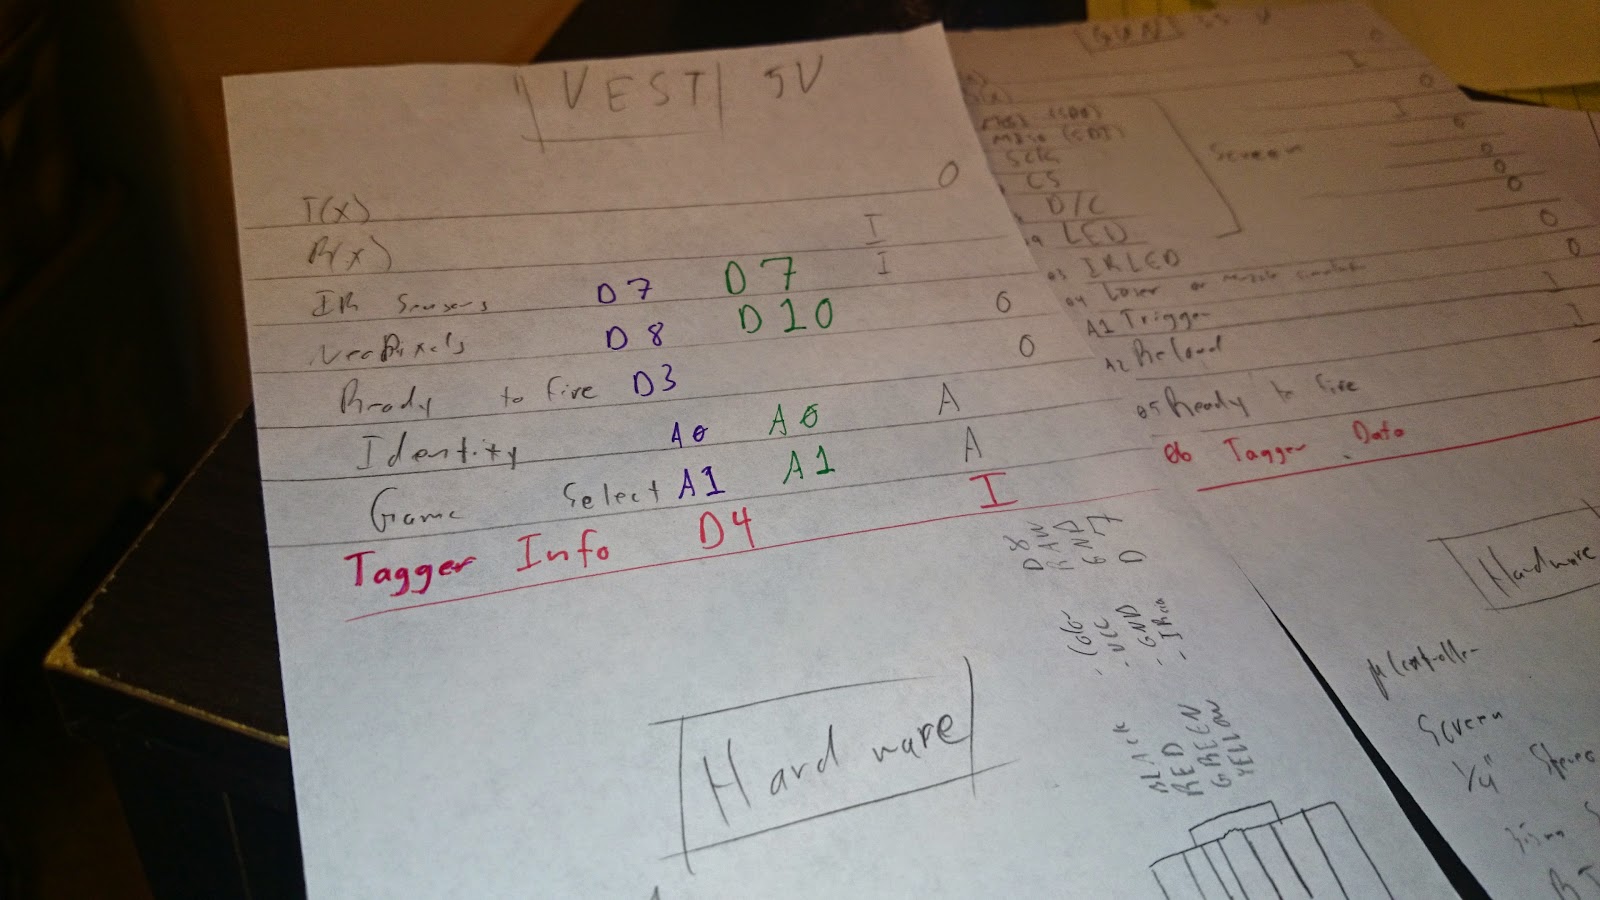 VEST 5V
T(x) O
R(x) I
IR Sensors D7 D7 I
NeoPixels D8 D10 O
Ready to fire D3 O
Identity A0 A0 A
Game Select A1 A1 A
Tagger Info D4 I
Hardware
D8
RAW
GND
D7
- VCC
- GND
BLACK
RED
GREEN
YELLOW
GUN
O
I
MISO (SDI) O
SCK
CS
D/C
LED
Screen
IRLED
04 Laser or muzzle
A1 Trigger
A2 Reload
05 Ready to fire
06 Tagger Data
Hardware
µController
Screen
1/4" Stereo